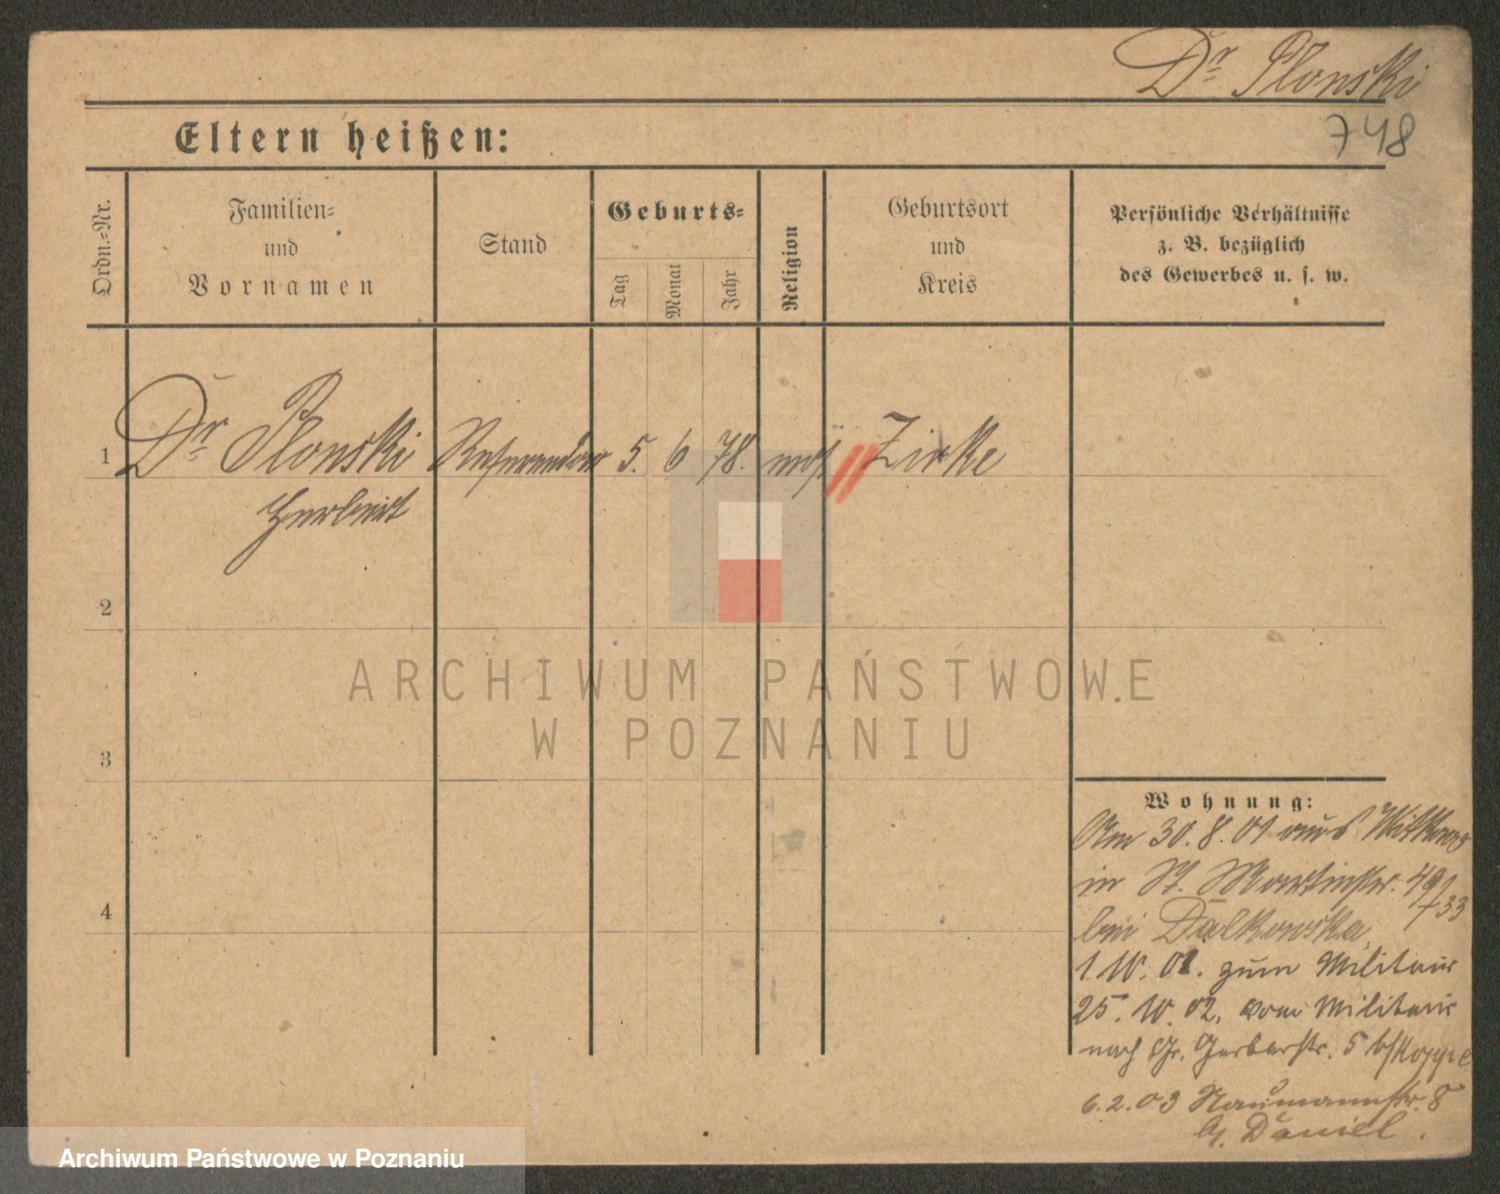 Dr Plonski
748
Eltern heißen:
Ordn.-Nr.
Familien-
und
Vornamen
Stand
Geburts-
Tag
Monat
Jahr
Religion
Geburtsort
und
Kreis
Persönliche Verhältnisse
z. B. bezüglich
des Gewerbes u. s. w.
1 Dr Plonski Referendar 5. 6 78. mos Zirke
Herbert
2
3
4
Wohnung:
Am 30.8.01 aus Witkowo
in St. Martinstr. 49/
733
bei Dalkowska,
1.10.01. zum Militair
25.10.02. vom Militair
nach Gr. Gerberstr. 5 b/Koppe
6.2.03 Naumannstr. 8
b/. Daniel.
ARCHIWUM PAŃSTWOWE
W POZNANIU
Archiwum Państwowe w Poznaniu